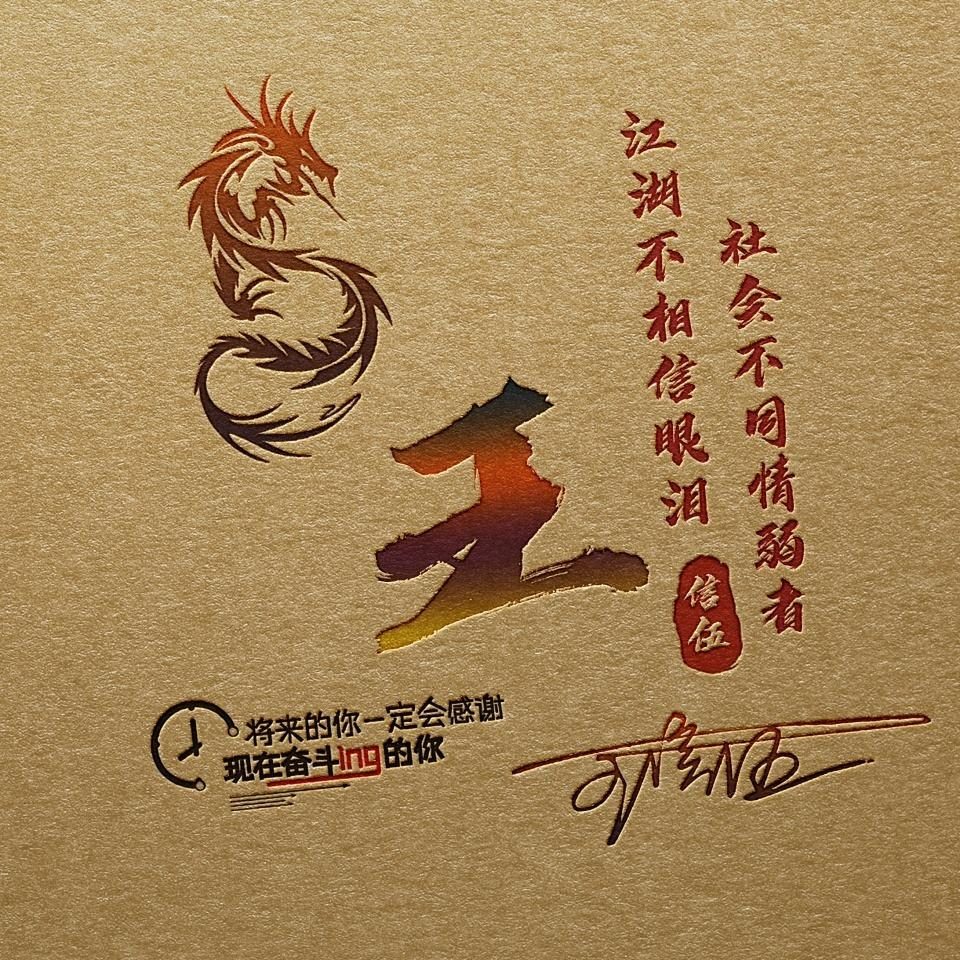 江湖不相信眼泪
社会不同情弱者
王
信伍
将来的你一定会感谢
现在奋斗ing的你